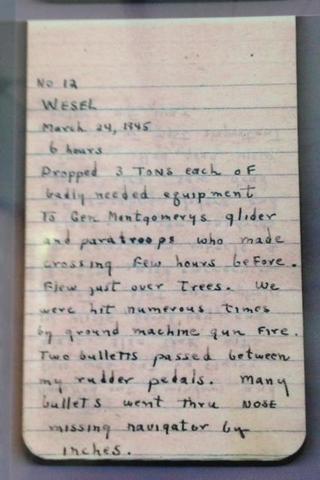 No 12
WESEL
March 24, 1945
6 hours
Dropped 3 TONS each oF
badly needed equipment
To Gen Montgomerys glider
and paratroops who made
crossing Few hours beFore.
Flew just over Trees. We
were hit numerous times
by ground machine gun Fire.
Two bulletts passed between
my rudder pedals. Many
bullets went thru NOSE
missing navigator by
inches.